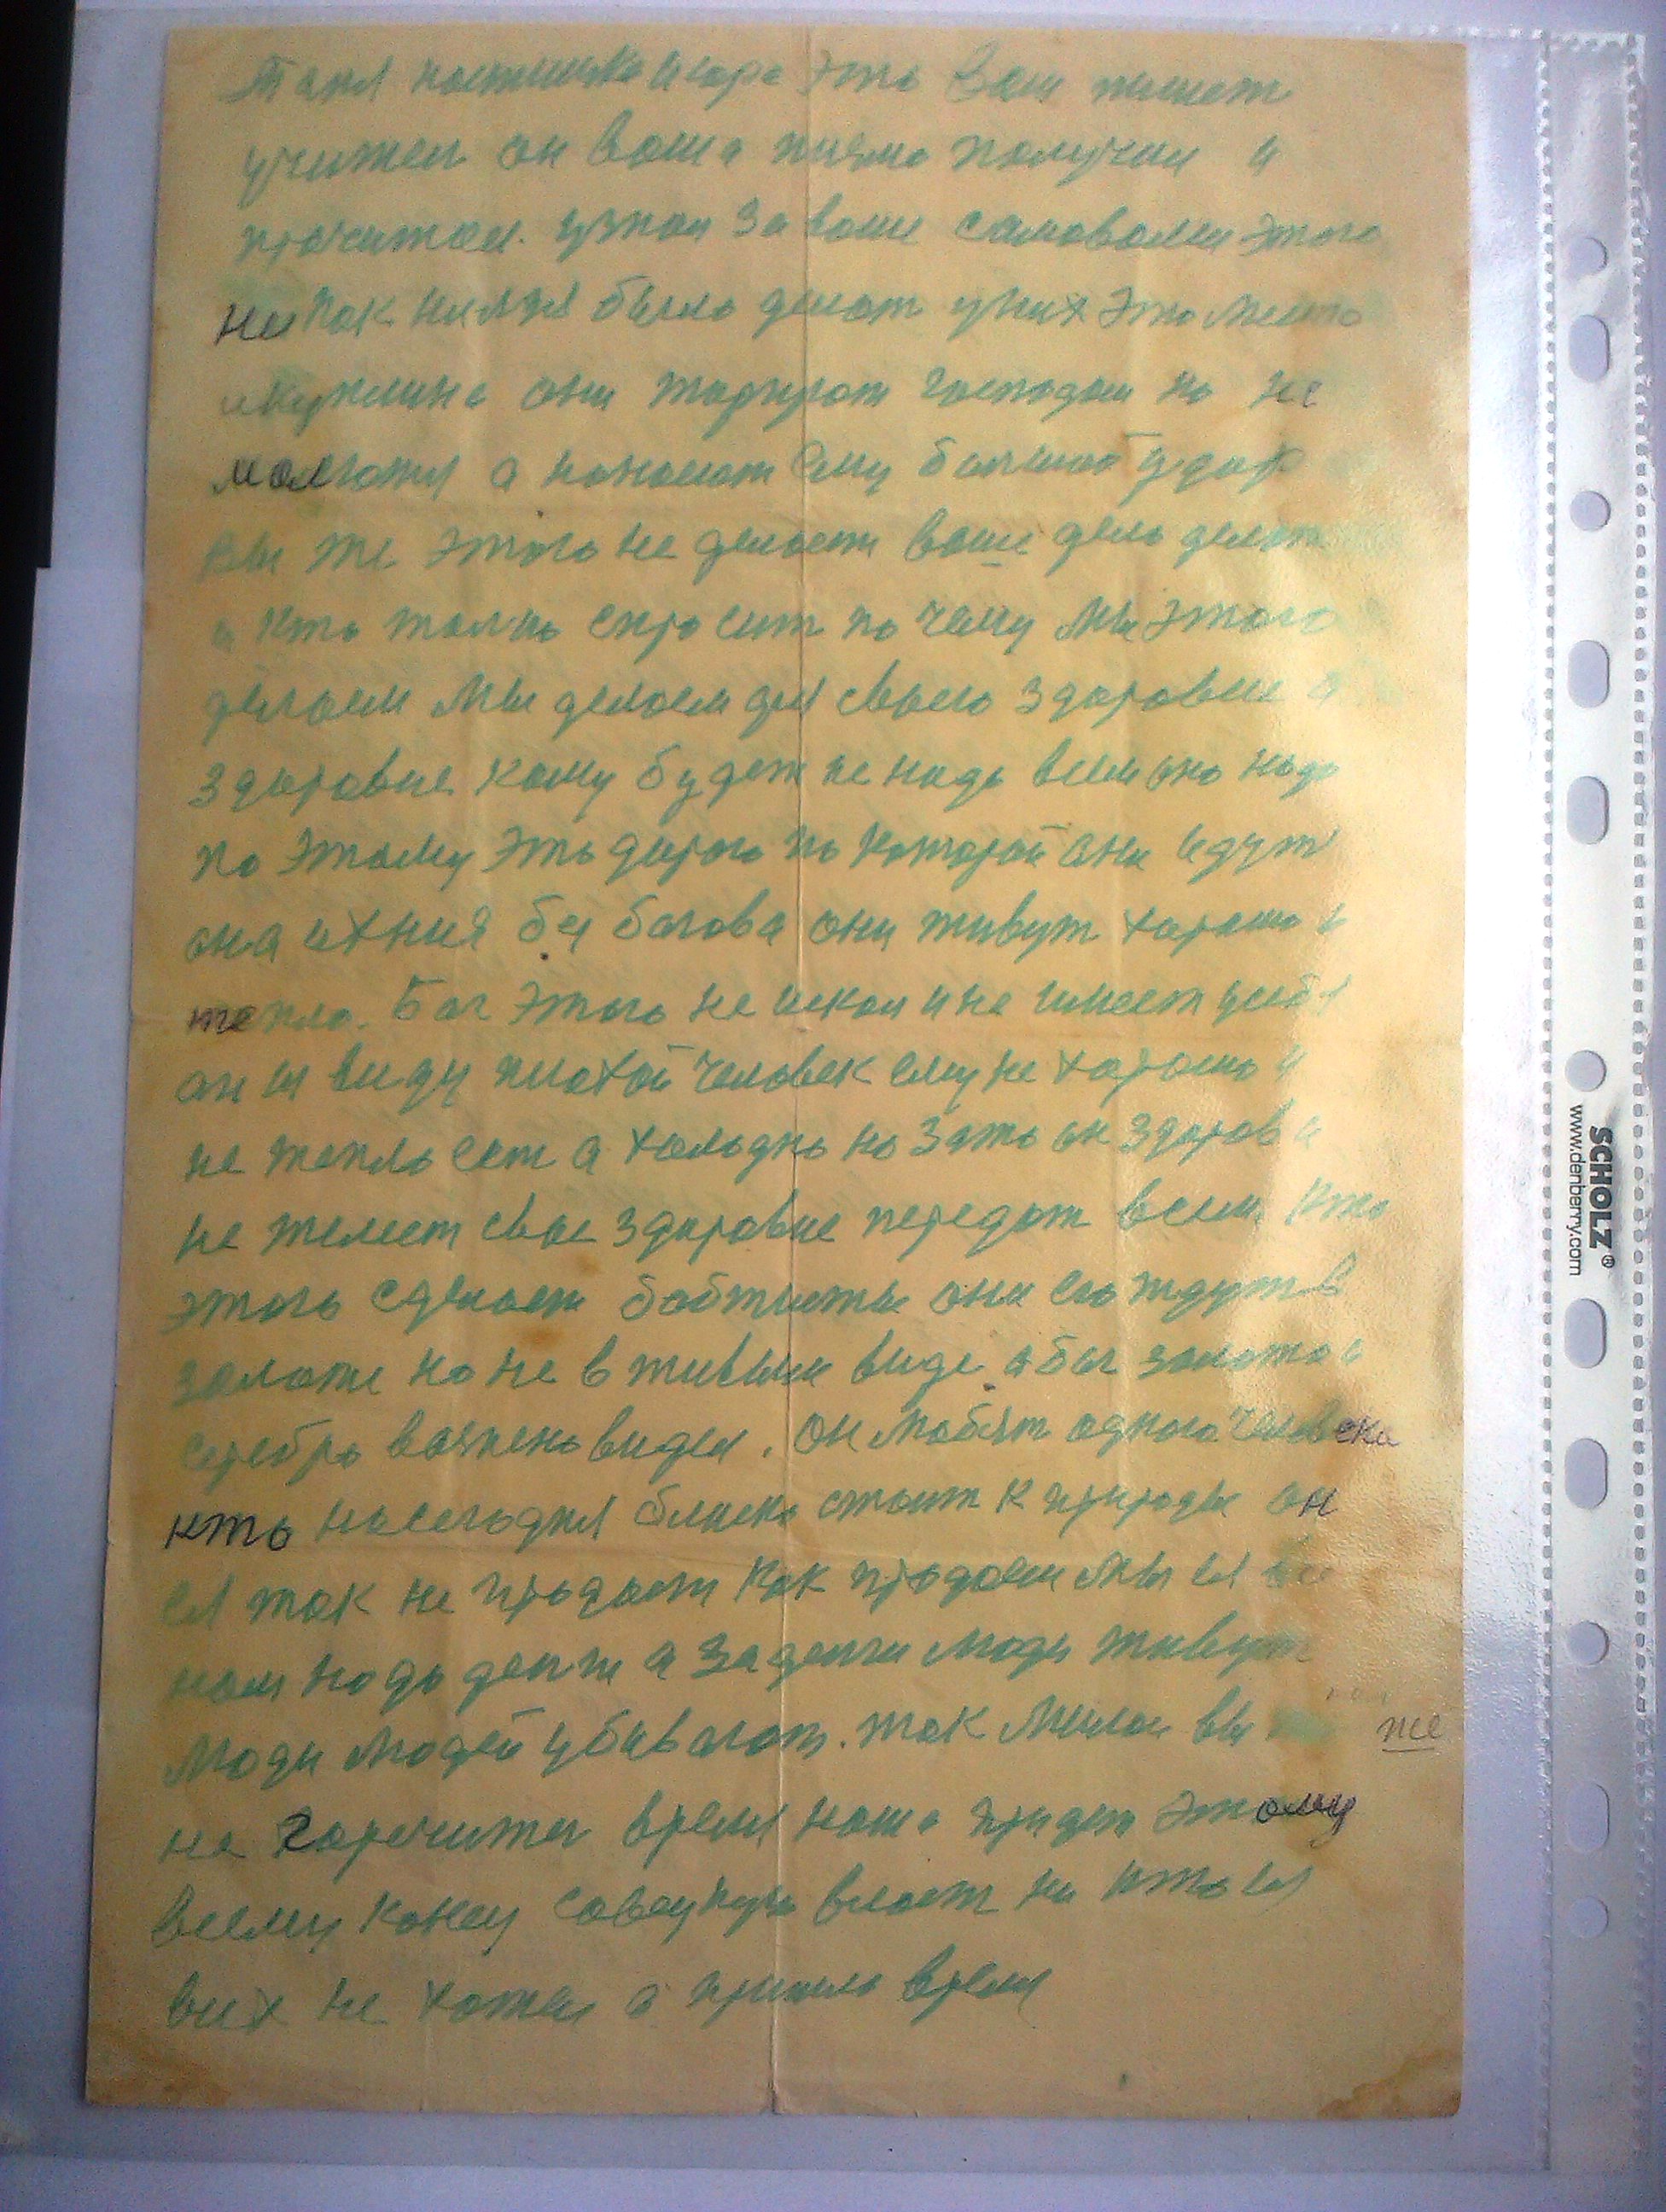 Таня настинка и юра это Ваш пишет
учител он Ваша письмо получил и
прочитал. узнал за ваше самоволи этого
ни как нильзя было делат у них это место
икуплина они торгуют господом но не
молютя а наносят ему болшой удар
вы же этого не делаети ваше дело делат
и кто толко спросит по чему мы этого
делаем мы делаем для своего здоровие а
здоровие кому будет не надо всем оно надо
по этому это дорого по которой они идут
она ихния бег богова они живут хорошо и
тепло. Бог этого не искал и не имеет у себя
он и виду плохой человек ему не хорошо и
не тепло ест а холодно но зато он здоров и
не жилеет свое здоровие передат всем, кто
этого сделает бабтисты они его ждут в
золоте но не в живым виде а бог золото и
серебро ваязнено видел. он любит одного человека
кто на сегодня близко стоит к природы он
ея так не продаст как продаем мы ея
нам надо денги а за денги люди живут
люди людей убивают. так милаи вы же
не гарячитеи время наша придет этому
всему конец совецкую власт ни кто ея
виих не хотел а пришло время
SCHOLZ®
www.denberry.com